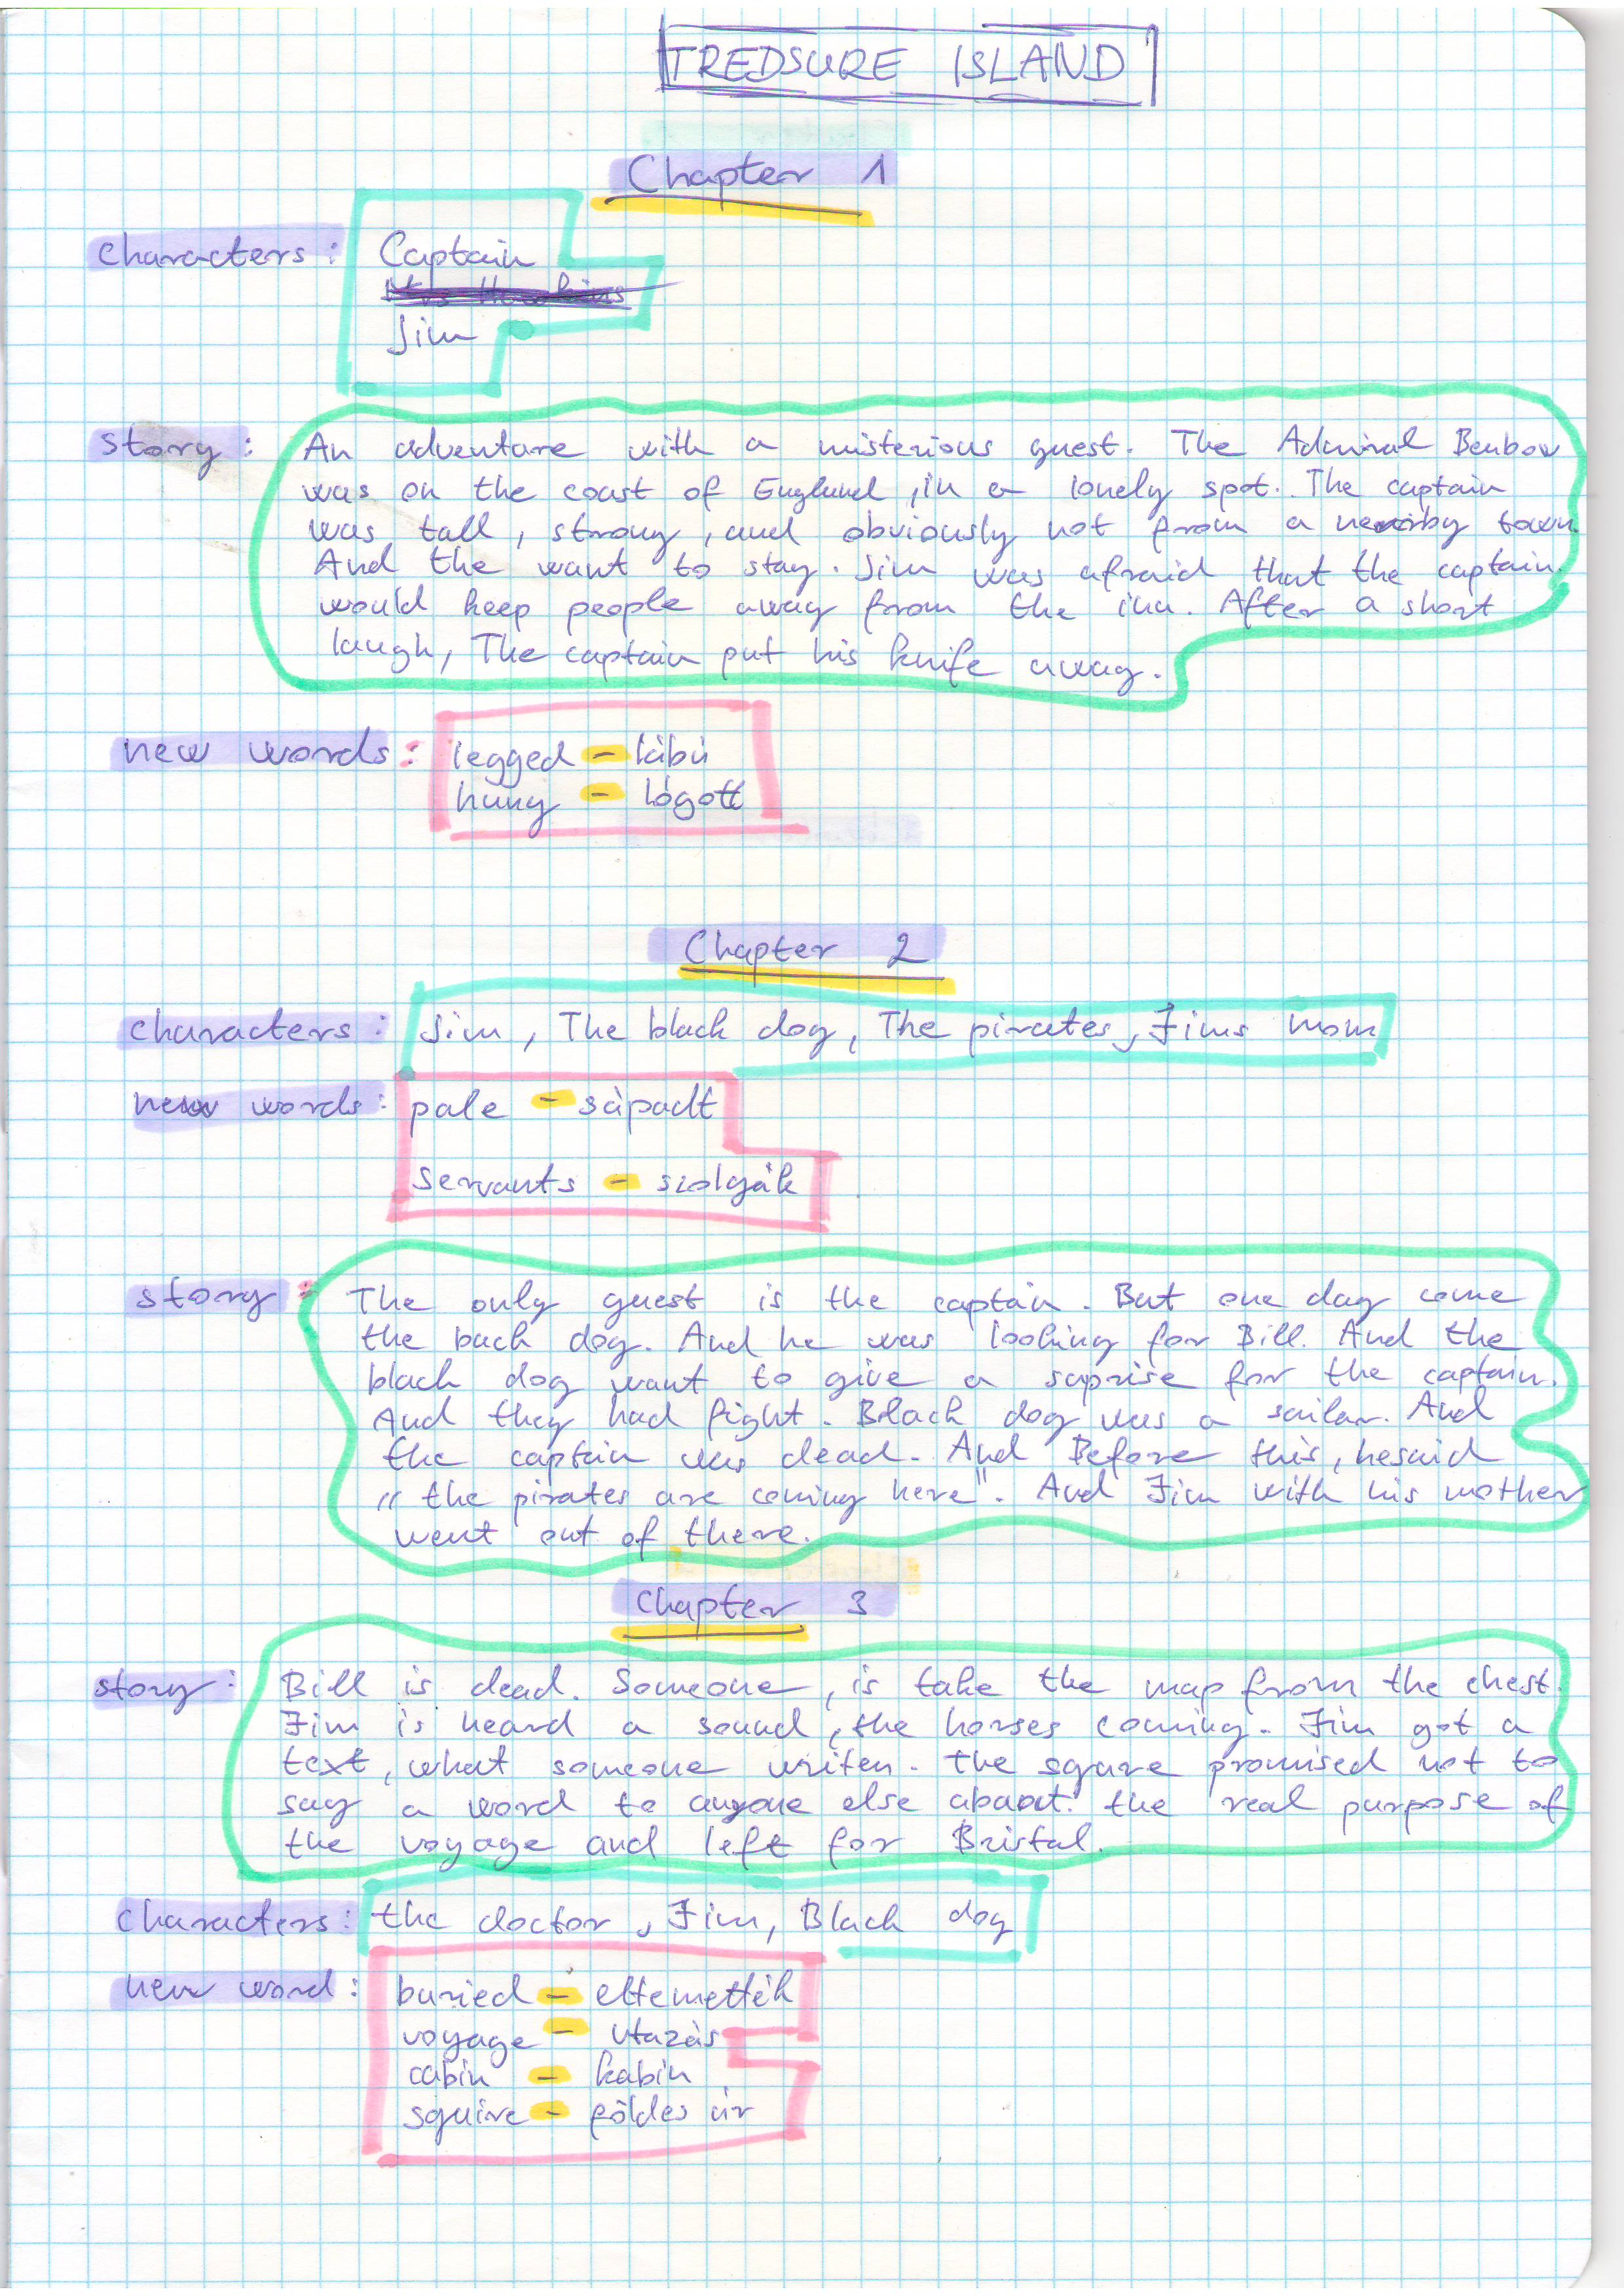 TREDSURE ISLAND
Chapter 1
Characters: Captain
Mrs Hawkins
Jim
story: An adventure with a misterious guest. The Admiral Benbow
was on the coast of England, in a lonely spot. The captain
was tall, strong, and obviously not from a nearby town.
And the want to stay. Jim was afraid that the captain.
would keep people away from the inn. After a short
laugh, The captain put his knife away.
new words: legged - lábú
hung - lógott
Chapter 2
characters: Jim, The black dog, The pirates, Jims mom
new words: pale - sápadt
servants - szolgák
story: The only guest is the captain. But one day come
the back dog. And he was looking for Bill. And the
black dog want to give a suprise for the captain.
And they had fight. Black dog was a sailar. And
the captain was dead. And Before this, hesaid
„ the pirates are coming here". And Jim with his mother
went out of there.
Chapter 3
story: Bill is dead. Someone, is take the map from the chest.
Jim is heard a sound, the horses coming. Jim got a
text, what someone writen. the sguare promised not to
say a word to anyone else abaout. the real purpose of
the voyage and left for Bristal.
characters: the doctor, Jim, Black dog
new word: buried - eltemették
voyage - utazás
cabin - kabin
sguire - földes úr